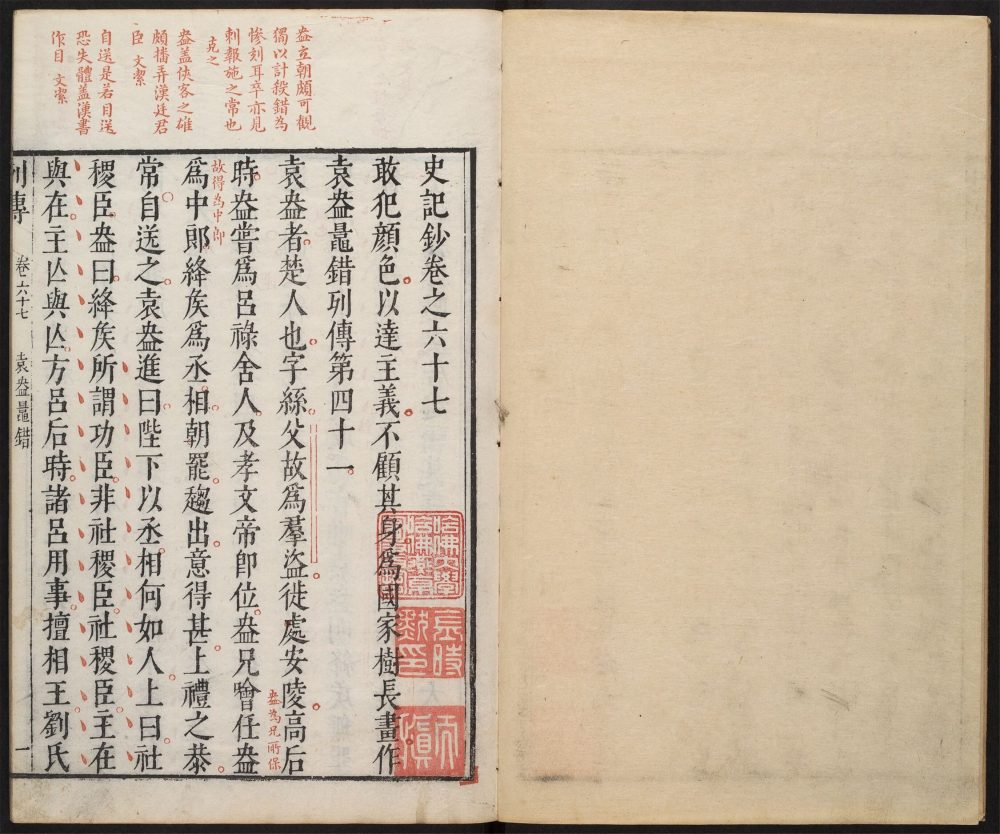 盎立朝頗可觀
獨以計殺錯為
慘刻耳卒亦見
刺報施之常也
克之
盎蓋俠客之雄
頗播弄漢廷君
臣 文潔
自送是若目送
恐失體蓋漢書
作目 文潔
史記鈔卷之六十七
敢犯顏色以達主義不顧其身爲國家樹長畫作
袁盎鼂錯列傳第四十一
袁盎者楚人也字絲父故爲羣盜徙處安陵高后
盎為兄所保
時盎嘗爲呂祿舍人及孝文帝即位盎兄噲任盎
故得為中郎
爲中郎絳矦爲丞相朝罷趨出意得甚上禮之恭
常自送之袁盎進曰陛下以丞相何如人上曰社
稷臣盎曰絳矦所謂功臣非社稷臣社稷臣主在
與在主亾與亾方呂后時諸呂用事擅相王劉氏
列傳 卷六十七 袁盎鼂錯 一